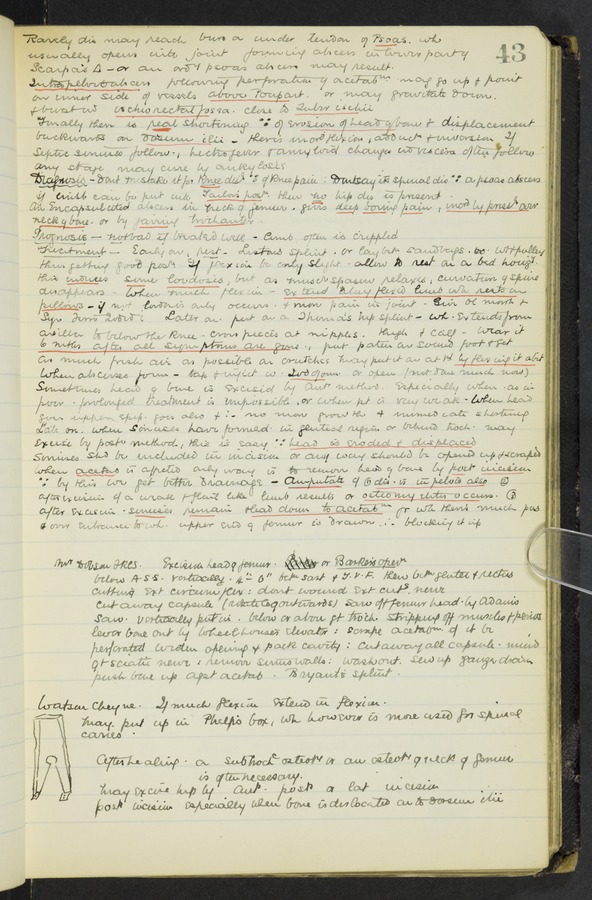 43
Rarely dis may reach bursa under tendon of Psoas. wh
usually opens into joint forming abscess in lower part of
Scarpa's Δ - or an ord psoas abscess may result.
Intrapelvic abscess following perforation of acetabm may go up & point
on inner side of vessels above Poupart. or may gravitate down,
& burst in ischiorectal fossa. close to Tuber ischii
Finally there is real shortening ∵ of erosion of head of bone & displacement
backwards on dorsum ilii - there is more flexion, adduct & inversion If
Septic sinuses follow, hectic fever & amyloid changes in viscera often follow
any stage may cure by ankylosis
Diagnosis - Dont mistake it for Knee dis ∵ of Knee pain: Dont say it is spinal dis ∵ a psoas abscess
if limb can be put into Tailors posn then no hip dis is present.
An Encapsulated abscess in neck of femur. gives deep boring pain, incd by press over
neck of bone. or by jarring trochanter.
Prognosis - not bad if treated well - limb often is crippled
Treatment - Early on, rest - Listons splint. or lay betn sandbags. &c wt & pulley
thus getting good posn If flexion be only slight - allow to rest on a bed
this induces some lordosis, but as muscr spasm relaxes, curvature of spine
disappears - When much flexion - extend Keep flexed limb wh rests on
pillows - if not lordosis only occurs & more pain in joint - Give ol morrh &
Syr Ferri Iodid i Later on put on a Thomas's hip splint - wh Extends from
axilla to below the Knee - cross pieces at nipples. thigh & calf - wear it
6 mths after all symptoms are gone, put patten on sound foot & get
as much fresh air as possible on crutches
When abscesses form - tap & inject w. Iodoform or open (not done much now)
Sometimes head of bone is Excised by Ant method. Especially when as in
poor - prolonged treatment is impossible, or when pt is very weak - When head
goes upper epip. goes also & ∴ no more growth & immediate shortening
Late on. when sinuses have formed in gluteal region or behind troch. may
Excise by postr method, this is easy ∵ head is eroded & displaced
Sinuses shd be included in incision or any way should be opened up & scraped
When acetabm is affected only way is to remove head of bone by post incision
∵ by this we get better drainage - Amputate if ① dis. is in pelvis also ②
after excision if a weak & flail like limb results or osteomyelitis occurs. ③
after Excision. sinuses remain & lead down to acetabm for wh there is much pus
& over entrance to wh upper end of femur is drawn ∴ blocking it up
Mr Dobson FRCS. Excision head of femur. or Barkers opern
below A.S.S. vertically. 4" betn Sart & T.V.F. then betn glutei & rectus
cutting Ext circumflex: dont wound Ext cuts nerve
cut away capsule (rotate leg outwards) saw off femur head by Adams
saw. vertically put in. below or above gt troch. stripping off muscles & perios
lever bone out by wheelhouses Elevator: scrape acetabm if it be
perforated widen opening & pack cavity: cut away all capsule. mind
gt sciatic nerve: remove sinus walls: wash out. sew up gauze drain
push bone up agst acetab. Bryants splint.
Watson Cheyne. If much flexion Extend in flexion.
may put up in Phelps box, wh however is more used for spinal
caries.
After healing. a subtroch osteoty or an osteoty of neck of femur
is often necessary.
May excise hip by ant. post & lat incision
post incision especially when bone is dislocated on to dorsum ilii